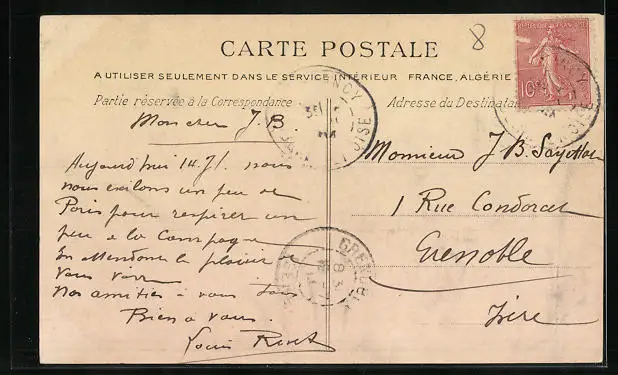 8
CARTE POSTALE
REPUBLIQUE FRANÇAISE
10
A UTILISER SEULEMENT DANS LE SERVICE INTÉRIEUR FRANCE, ALGÉRIE
Partie réservée à la Correspondance
Adresse du Destinataire
Mon cher J. B.
Aujourd'hui 14 Jt. nous
nous évadons un peu de
Paris pour respirer un
peu à la campagne
En attendant le plaisir de
vous voir
Nos amitiés à vous tous
Bien à vous.
Louis
Monsieur J B.
1 Rue Condorcet
Grenoble
Isère
OISE
GRENOBLE
ISERE